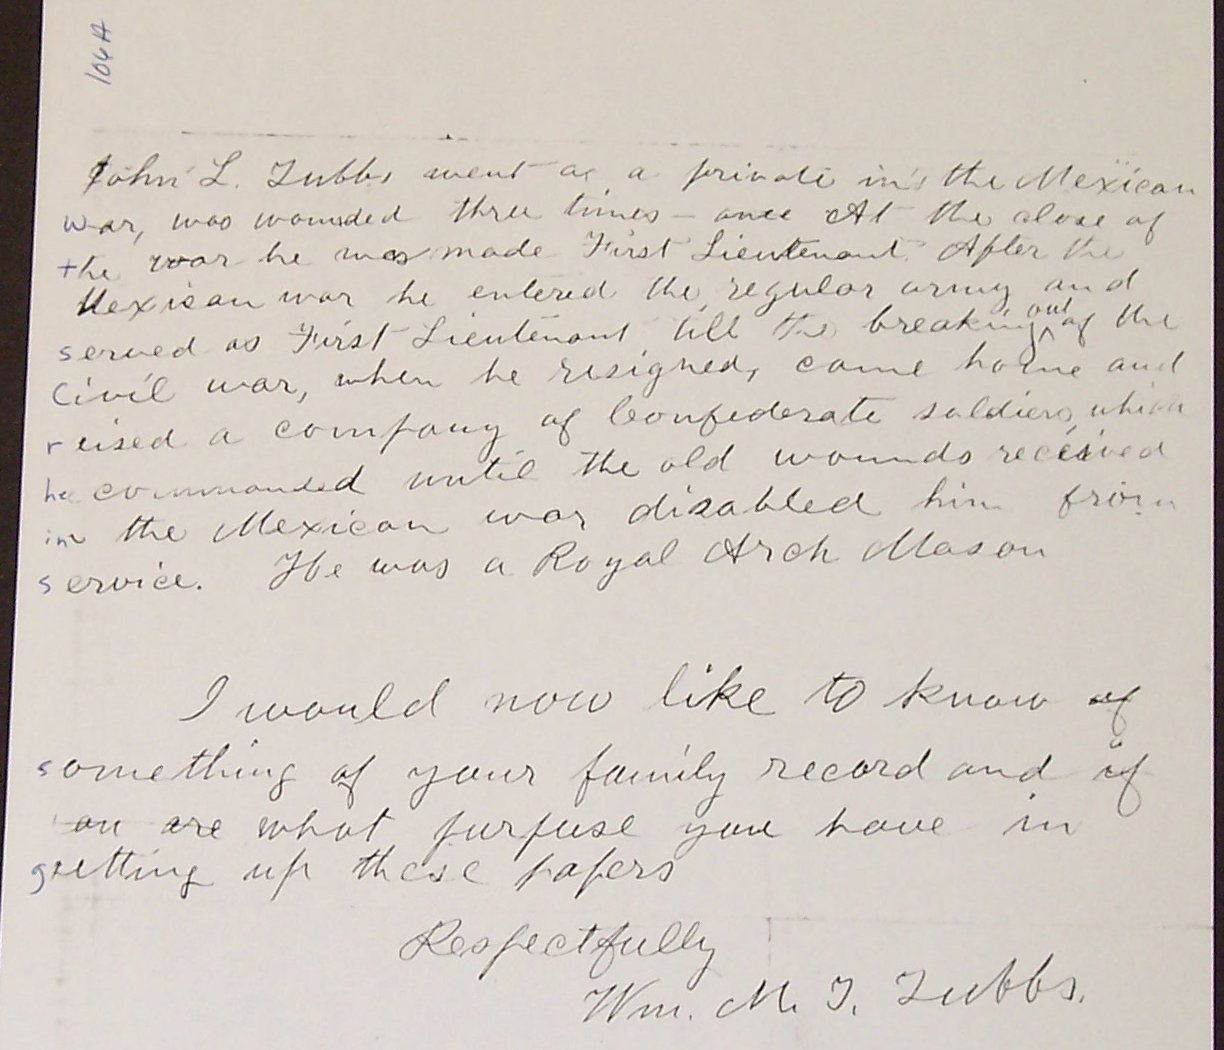 106A
John L. Tubbs went as a private in the Mexican
war, was wounded three times - once At the close of
the war he was made First Lieutenant. After the
Mexican war he entered the regular army and
served as First Lieutenant till the breaking out of the
Civil war, when he resigned, came home and
reised a company of Confederate soldiers, which
he commanded until the old wounds received
in the Mexican war disabled him from
service. He was a Royal Arch Mason
I would now like to know of
something of your family record and if
are what purpuse you have in
getting up these papers
Respectfully
Wm. M. T. Tubbs.